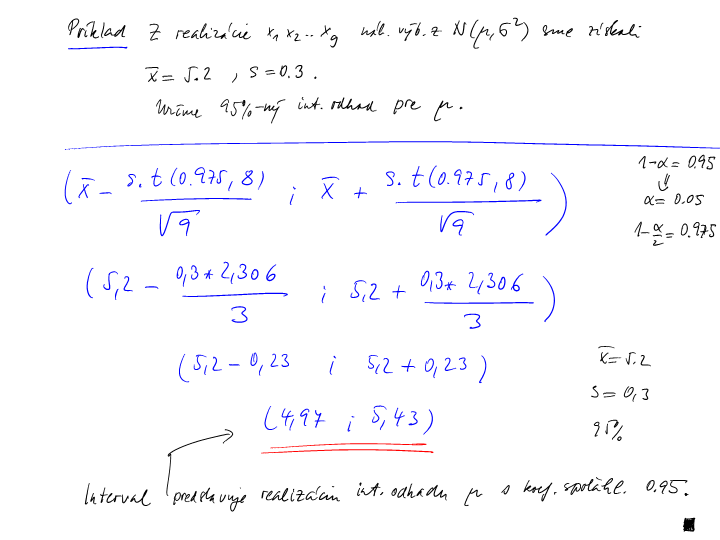 Príklad Z realizácie x₁ x₂ .. x₉ náh. výb. z N(μ, σ²) sme získali
x̄ = 5.2 , s = 0.3 .
Určime 95%-ný int. odhad pre μ .
( x̄ - s. t(0.975, 8) / √9 ; x̄ + s. t(0.975, 8) / √9 )
1-α = 0.95
⇓
α = 0.05
1-α/2 = 0.975
( 5,2 - 0,3 * 2,306 / 3 ; 5,2 + 0,3 * 2,306 / 3 )
( 5,2 - 0,23 ; 5,2 + 0,23 )
x̄ = 5.2
s = 0,3
95%
( 4,97 ; 5,43 )
Interval predstavuje realizáciu int. odhadu μ s koef. spoľahl. 0.95.